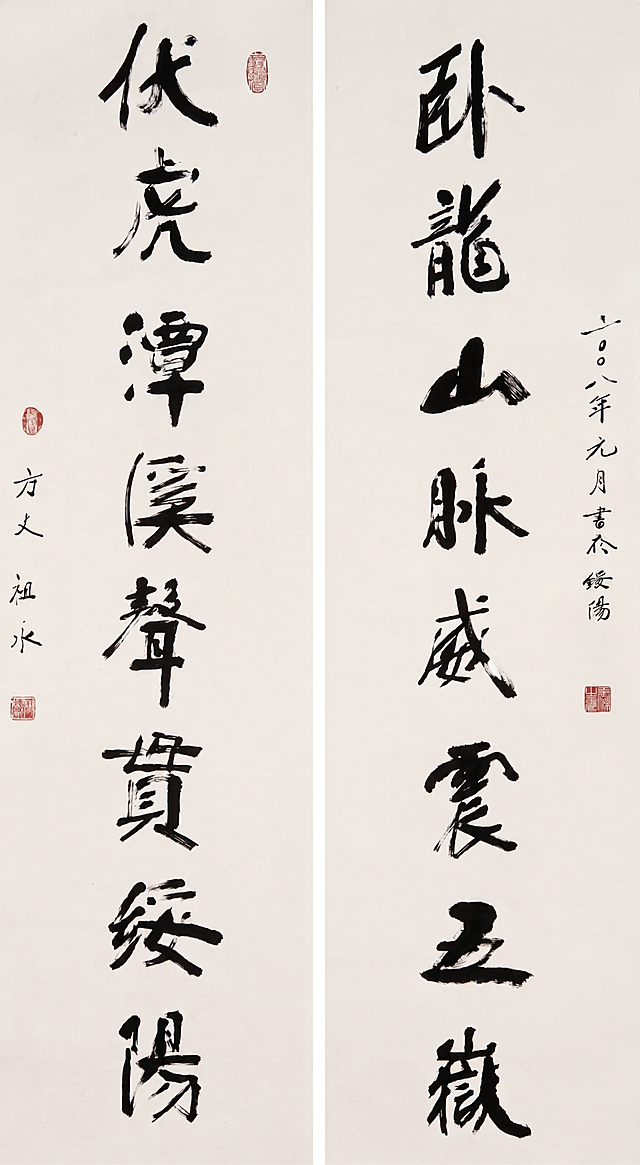 卧龍山脉威震五嶽
二〇〇八年元月書於綏陽
伏虎潭溪聲貫綏陽
方丈祖永